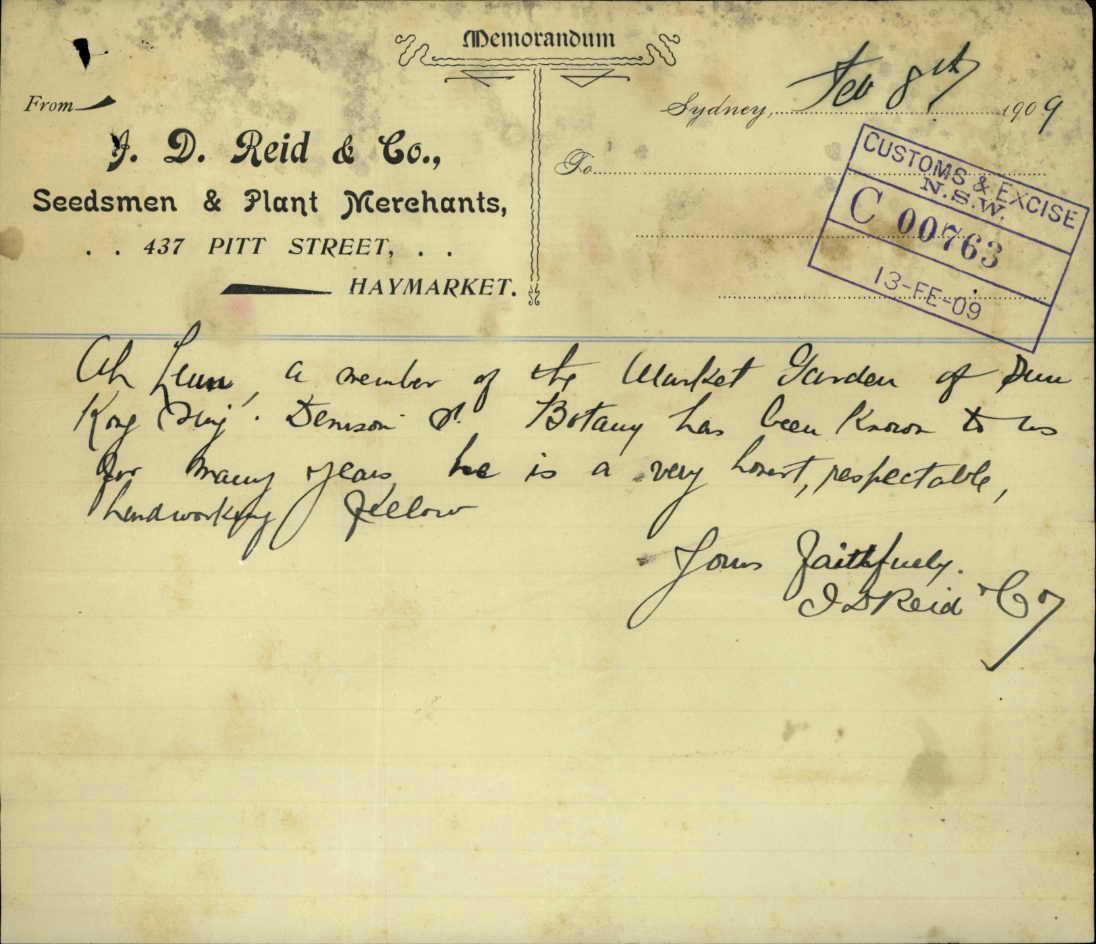 Memorandum
From
J. D. Reid & Co.,
Seedsmen & Plant Merchants,
. . 437 PITT STREET, . .
HAYMARKET.
Sydney, Feb 8th 1909
To
CUSTOMS & EXCISE
N.S.W.
C 00763
13-FE-09
Ah Leun, a member of the Market Garden of Sun
Kong Hing. Denison St. Botany has been known to us
for many years, he is a very honest, respectable,
hardworking fellow
Yours faithfully.
J D Reid & Co